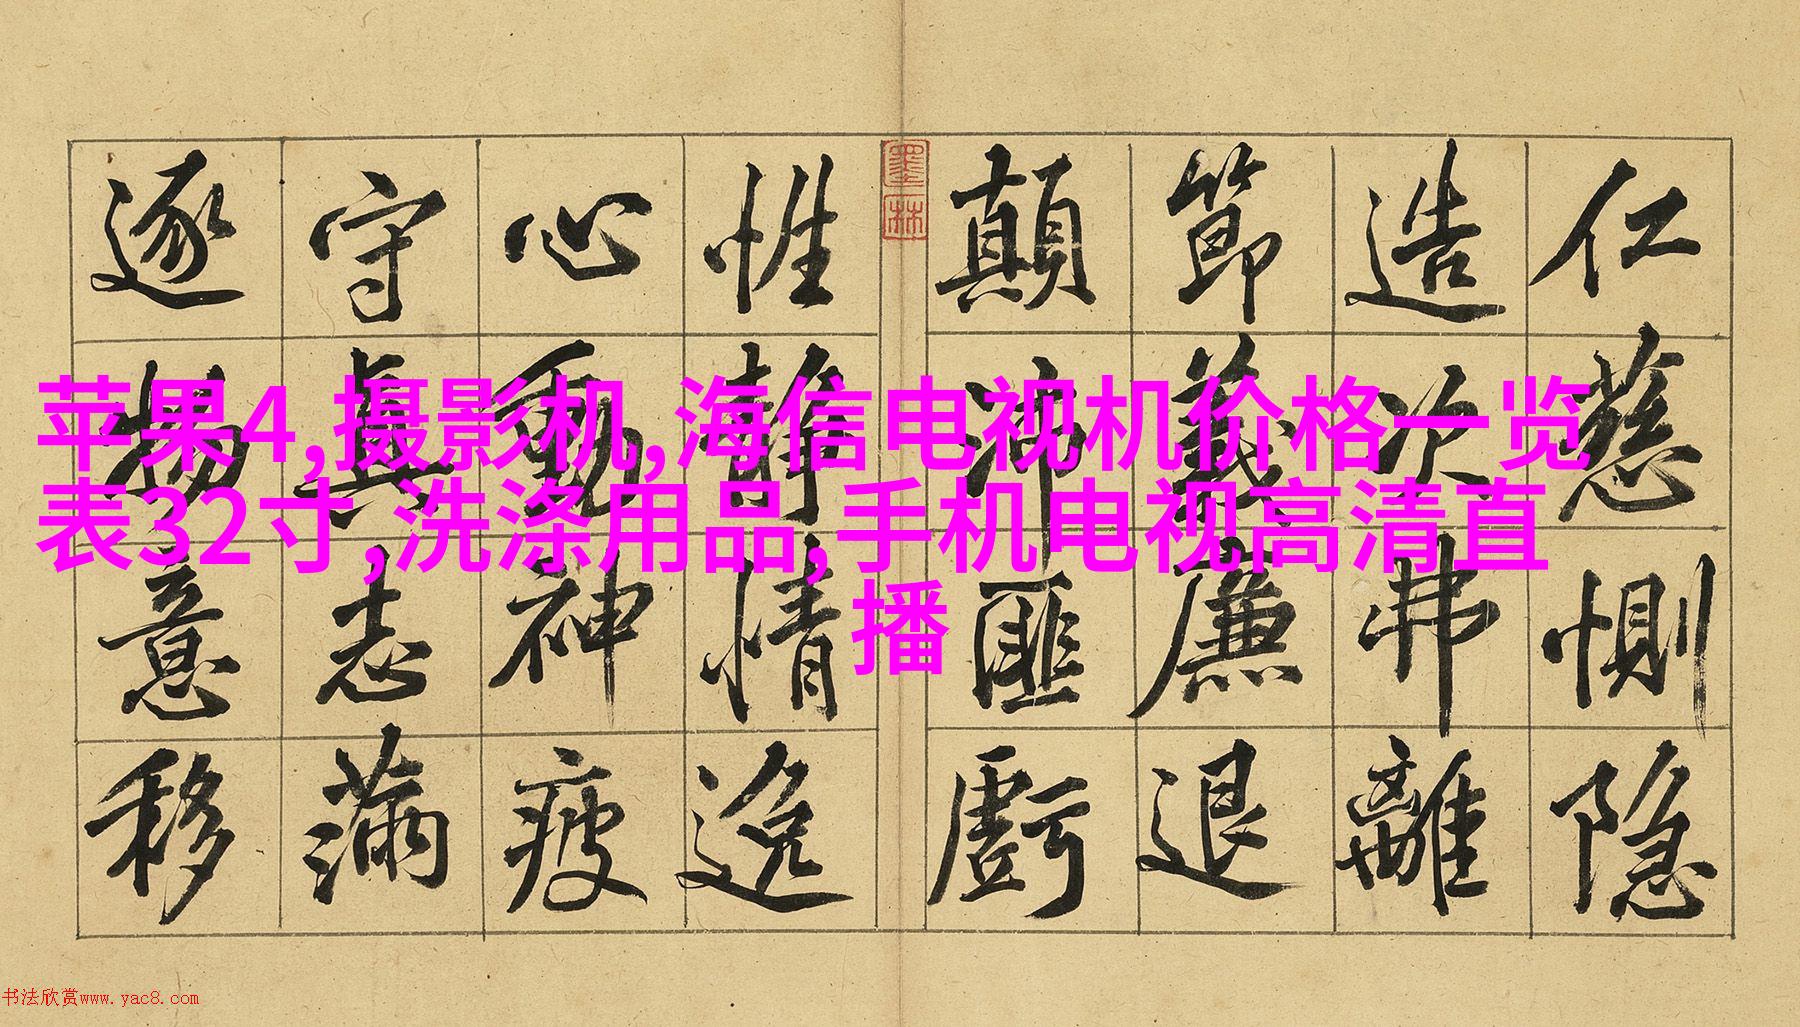 仁慈惻隐
造次弗離
節義廉退
顛沛匪虧
墨林
性靜情逸
心動神疲
守眞志滿
逐物意移
苹果4,摄影机,海信电视机价格一览
表32寸,洗涤用品,手机电视高清直
播
书法欣赏www.yac8.com